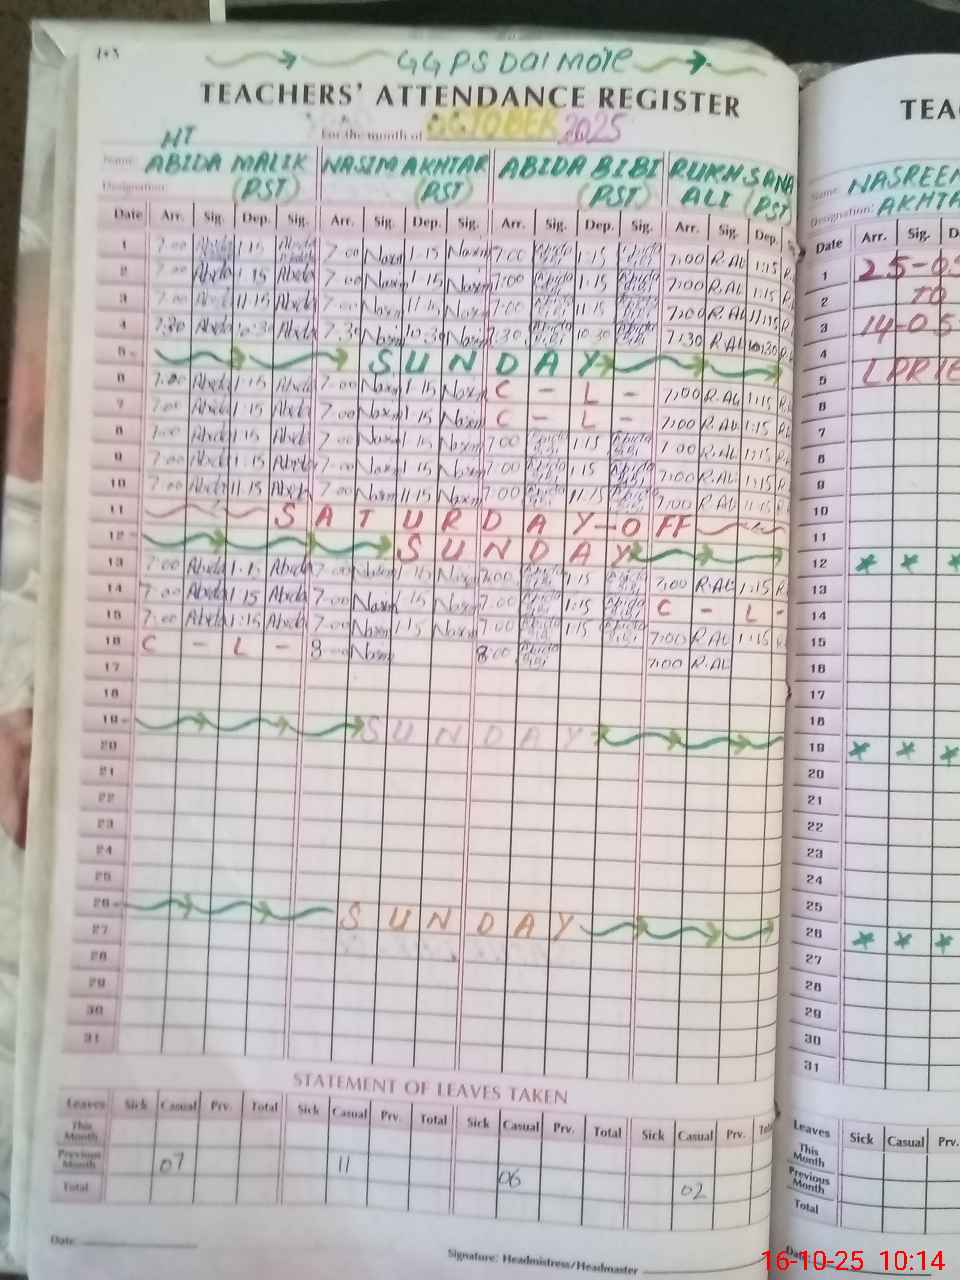 GGPS Dal mole
TEACHERS' ATTENDANCE REGISTER
For the month of OCTOBER 2025
HT
Name: ABIDA MALIK NASIM AKHTAR ABIDA BIBI RUKHSANA
Designation: (PST) (PST) (PST) ALI (PST
Date Arr. Sig. Dep. Sig. Arr. Sig. Dep. Sig. Arr. Sig. Dep. Sig. Arr. Sig. Dep.
1 7:00 Abida 1:15 Abida 7:00 Nasim 1:15 Nasim 7:00 Abida Bibi 1:15 Abida Bibi 7:00 R.AL 1:15 R.
2 7:00 Abida 1:15 Abida 7:00 Nasim 1:15 Nasim 7:00 Abida Bibi 1:15 Abida Bibi 7:00 R.AL 1:15 R.
3 7:00 Abida 11:15 Abida 7:00 Nasim 11:15 Nasim 7:00 Abida Bibi 11:15 Abida Bibi 7:00 R.AL 11:15 R.
4 7:30 Abida 10:30 Abida 7:30 Nasim 10:30 Nasim 7:30 Abida Bibi 10:30 Abida Bibi 7:30 R.AL 10:30 R.
5 SUNDAY
6 7:00 Abida 1:15 Abida 7:00 Nasim 1:15 Nasim C - L - 7:00 R.AL 1:15 R.
7 7:00 Abida 1:15 Abida 7:00 Nasim 1:15 Nasim C - L - 7:00 R.AL 1:15 R.
8 7:00 Abida 1:15 Abida 7:00 Nasim 1:15 Nasim 7:00 Abida Bibi 1:15 Abida Bibi 7:00 R.AL 1:15 R.
9 7:00 Abida 1:15 Abida 7:00 Nasim 1:15 Nasim 7:00 Abida Bibi 1:15 Abida Bibi 7:00 R.AL 1:15 R.
10 7:00 Abida 11:15 Abida 7:00 Nasim 11:15 Nasim 7:00 Abida Bibi 11:15 Abida Bibi 7:00 R.AL 11:15 R.
11 SATURDAY-OFF
12 SUNDAY
13 7:00 Abida 1:15 Abida 7:00 Nasim 1:15 Nasim 7:00 Abida Bibi 1:15 Abida Bibi 7:00 R.AL 1:15 R
14 7:00 Abida 1:15 Abida 7:00 Nasim 1:15 Nasim 7:00 Abida Bibi 1:15 Abida Bibi C - L -
15 7:00 Abida 1:15 Abida 7:00 Nasim 1:15 Nasim 7:00 Abida Bibi 1:15 Abida Bibi 7:00 R.AL 1:15 R
16 C - L - 8:00 Nasim 8:00 Abida Bibi 7:00 R.AL
17
18
19 SUNDAY
20
21
22
23
24
25
26 SUNDAY
27
28
29
30
31
STATEMENT OF LEAVES TAKEN
Leaves Sick Casual Prv. Total Sick Casual Prv. Total Sick Casual Prv. Total Sick Casual Prv.
This Month
Previous Month 07 11 06 02
Total
Date:
Signature: Headmistress/Headmaster
TEAC
Name: NASREEN
Designation: AKHTA
Date Arr. Sig. D
1 25-05
2 TO
3 14-05
4
5 LPR
6
7
8
9
10
11
12
13
14
15
16
17
18
19
20
21
22
23
24
25
26
27
28
29
30
31
Leaves Sick Casual Prv.
This Month
Previous Month
Total
Date:
16-10-25 10:14